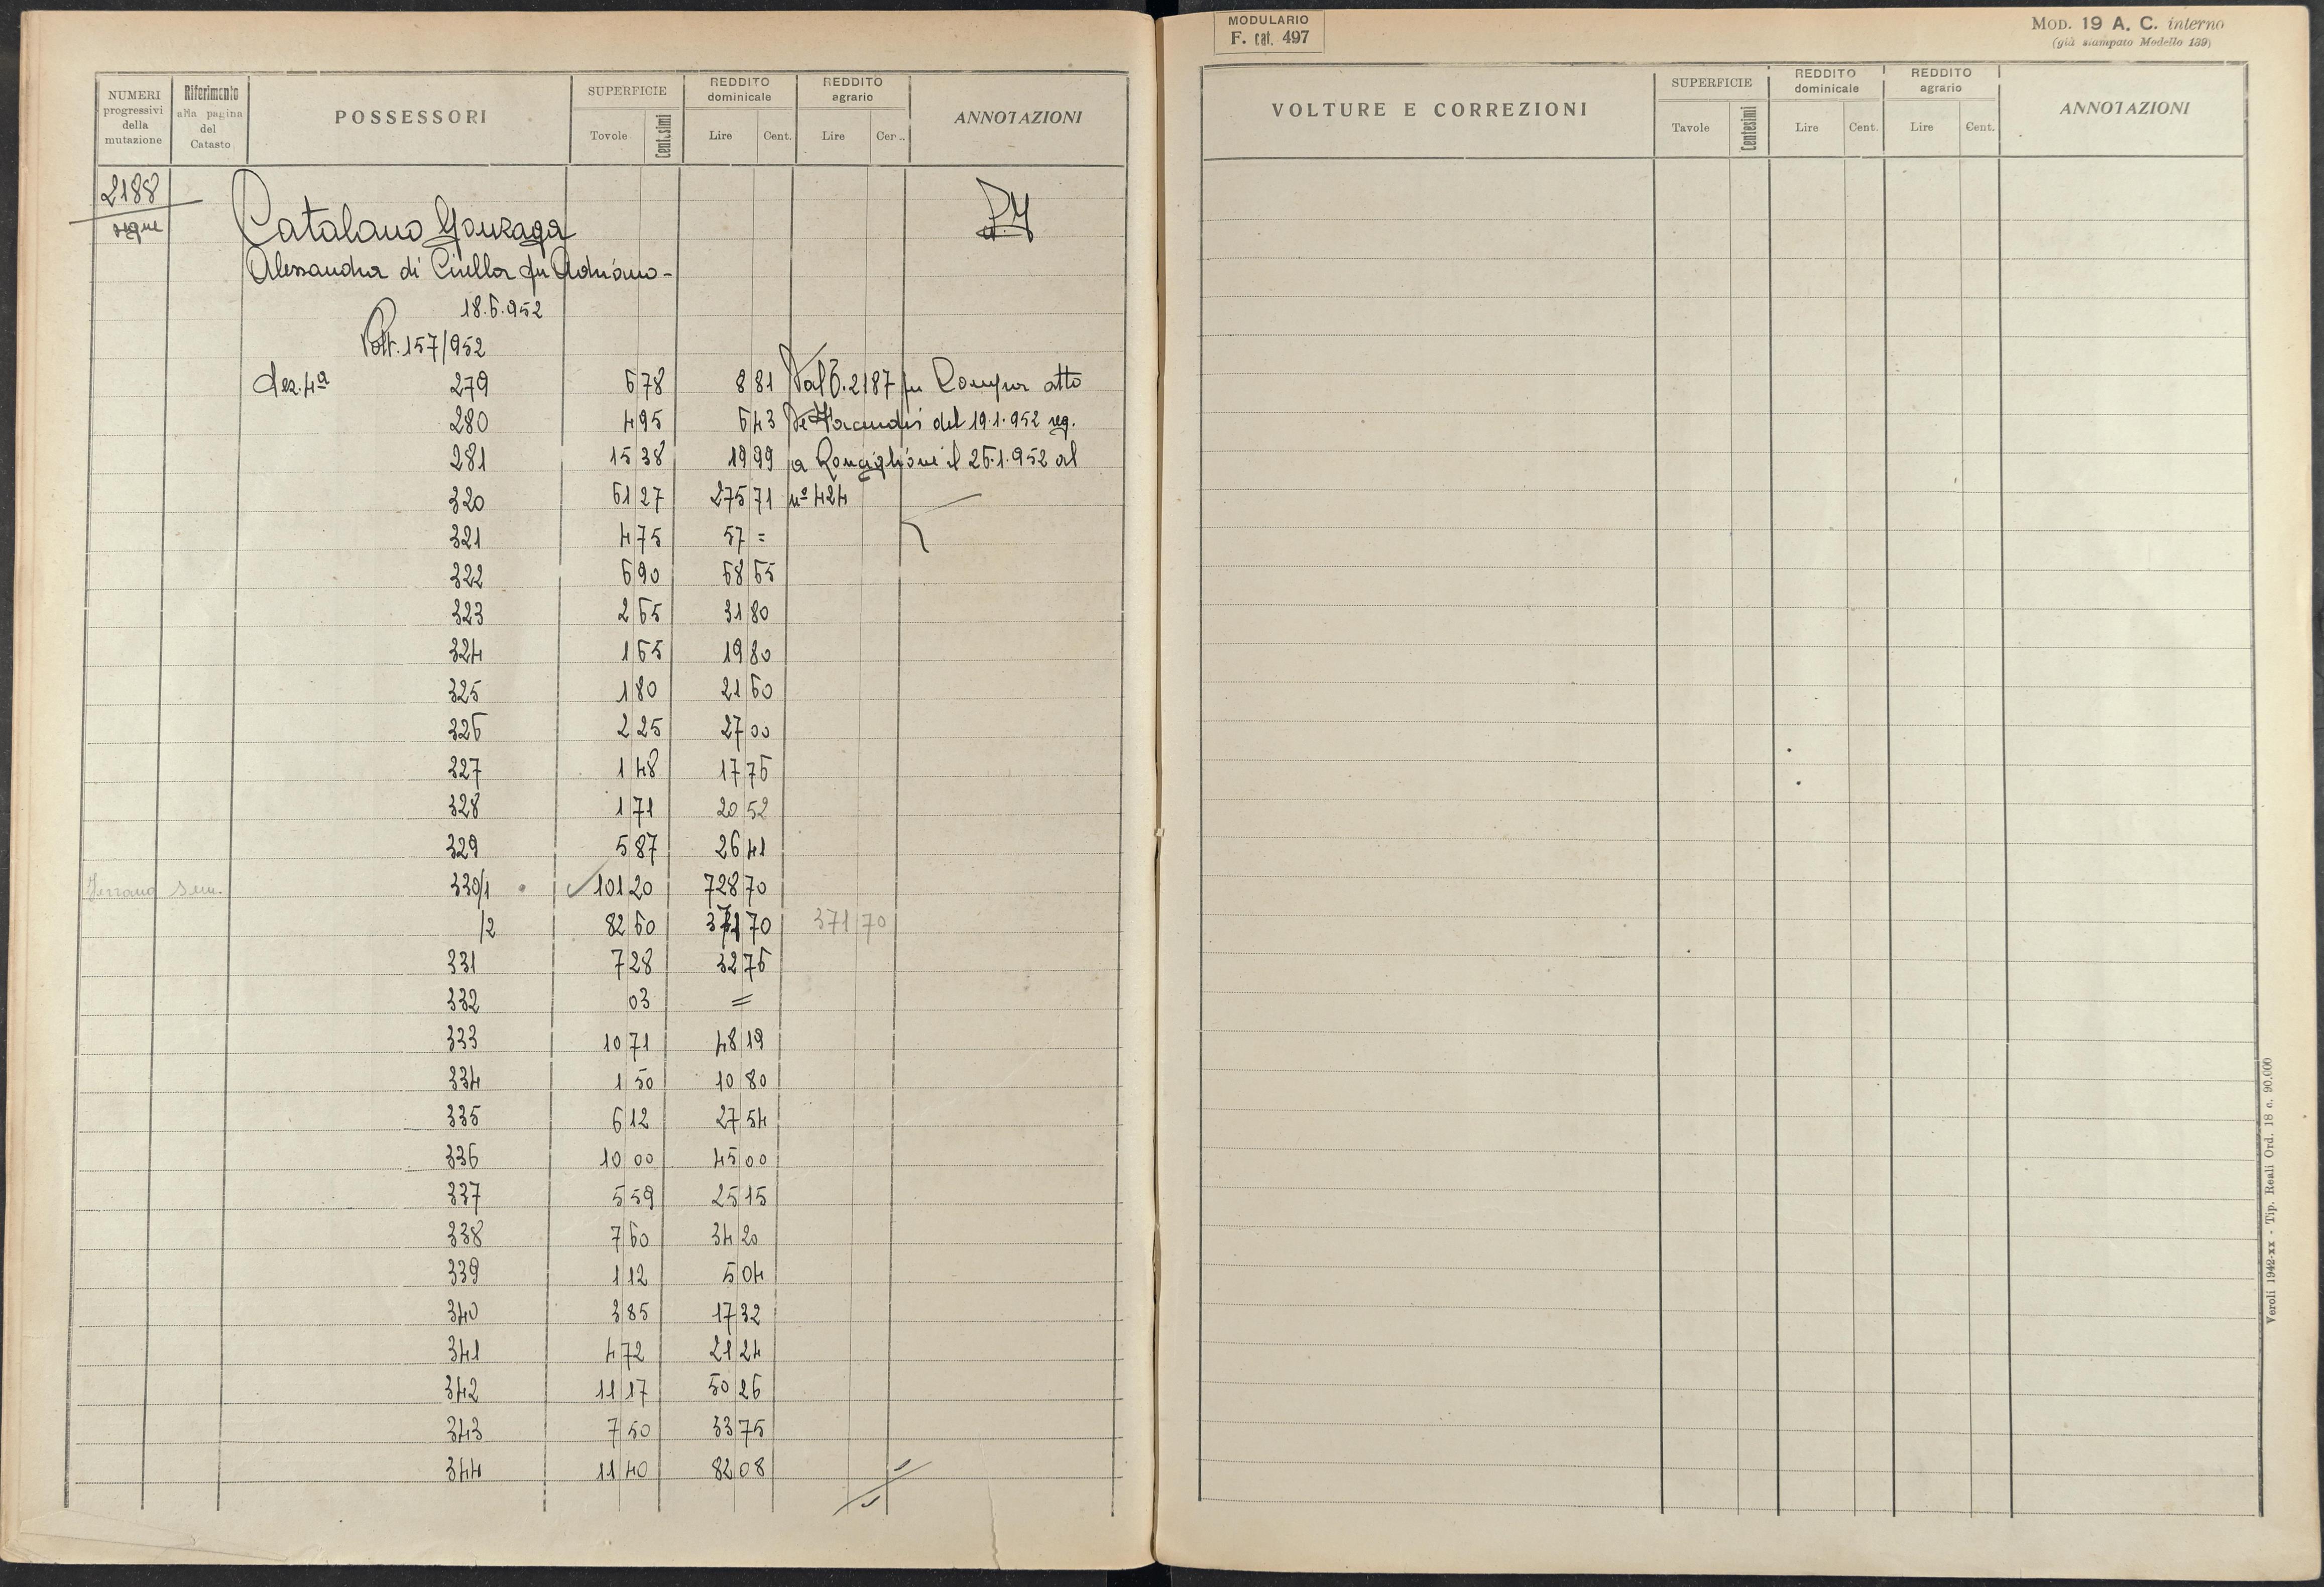 NUMERI progressivi della mutazione
Riferimento alla pagina del Catasto
POSSESSORI
SUPERFICIE
Tavole Centesimi
REDDITO dominicale
Lire Cent.
REDDITO agrario
Lire Cent.
ANNOTAZIONI
2188
segue
Catalano Gonzaga
Alessandra di Cirella fu Adriano -
18.6.952
Volt. 157/952
Sez. 4ª 279 6 78 8 81 Dal C. 2187 per Compra atto
280 4 95 6 43 del 19.1.952 reg.
281 15 38 19 99 a Ronciglione il 26.1.952 al
320 61 27 275 71 nº 424
321 4 75 57 =
322 6 90 68 65
323 2 65 31 80
324 1 65 19 80
325 1 80 21 60
326 2 25 27 00
327 1 48 17 76
328 1 71 20 52
329 5 87 26 41
330/1 101 20 728 70
/2 82 60 371 70 371 70
331 7 28 32 76
332 03 =
333 10 71 48 19
334 1 50 10 80
335 6 12 27 54
336 10 00 45 00
337 5 59 25 15
338 7 60 34 20
339 1 12 5 04
340 3 85 17 32
341 4 72 21 24
342 11 17 50 26
343 7 50 33 75
344 11 40 82 08
MODULARIO
F. cat. 497
MOD. 19 A. C. interno
(già stampato Modello 139)
VOLTURE E CORREZIONI
SUPERFICIE
Tavole Centesimi
REDDITO dominicale
Lire Cent.
REDDITO agrario
Lire Cent.
ANNOTAZIONI
Veroli 1942-XX - Tip. Reali Ord. 18 c. 90.000